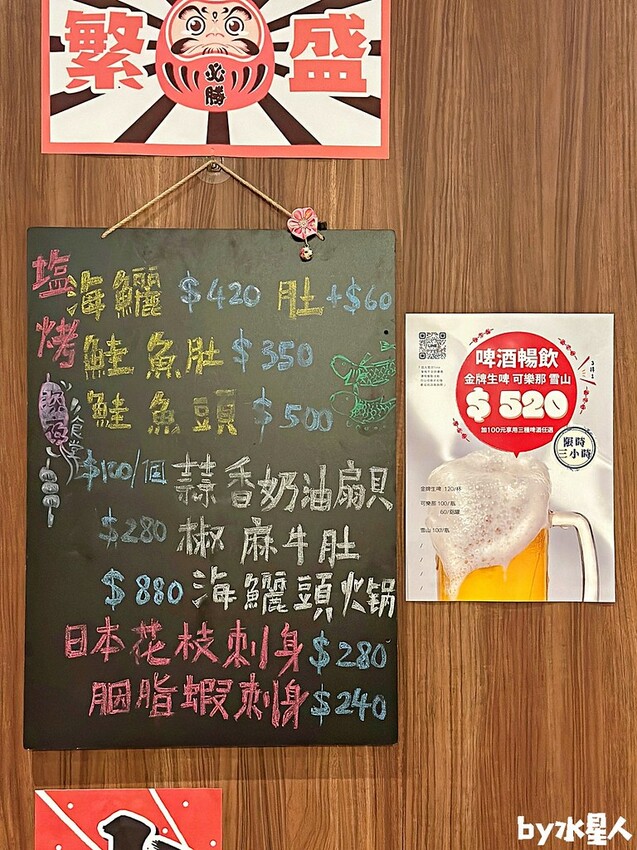 繁 盛
必勝
塩烤
海鱺 $420 肚+$60
鮭魚肚 $350
鮭魚頭 $500
深夜
食堂
$120/個 蒜香奶油扇貝
$280 椒麻牛肚
$880 海鱺頭火锅
日本花枝刺身 $280
胭脂蝦刺身 $240
啤酒暢飲
金牌生啤 可樂那 雪山
$ 520
加100元享用三種啤酒任選
限時
三小時
金牌生啤 120/杯
可樂那 100/瓶
60/鋁罐
雪山 100/瓶
by水星人